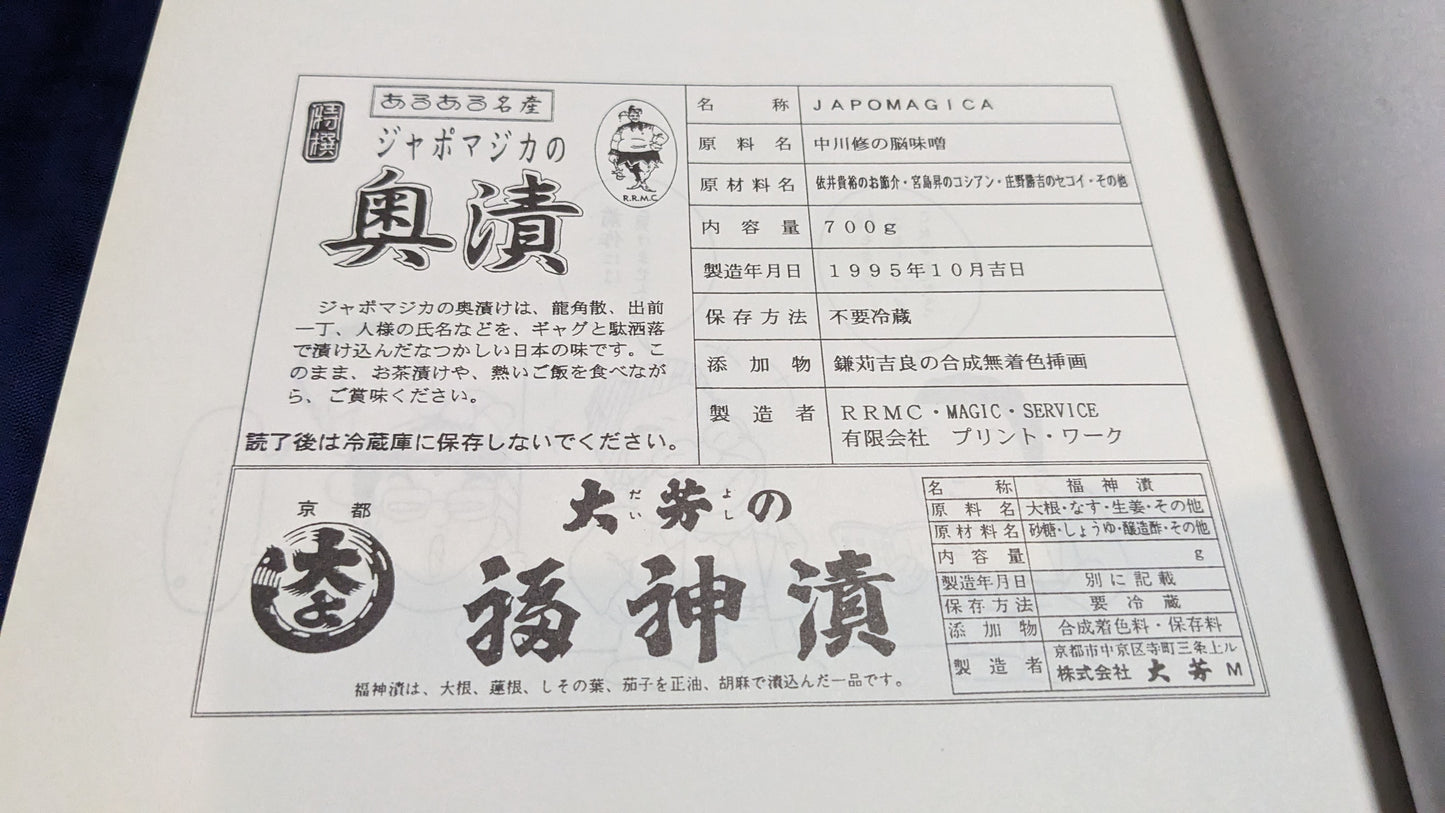 特撰
あるある名産
ジャポマジカの
奥漬
R.R.M.C.
ジャポマジカの奥漬けは、龍角散、出前
一丁、人様の氏名などを、ギャグと駄洒落
で漬け込んだなつかしい日本の味です。こ
のまま、お茶漬けや、熱いご飯を食べなが
ら、ご賞味ください。
読了後は冷蔵庫に保存しないでください。
名称 JAPOMAGICA
原料名 中川修の脳味噌
原材料名 依井貴裕のお節介・宮島昇のコシアン・庄野勝吉のセコイ・その他
内容量 700g
製造年月日 1995年10月吉日
保存方法 不要冷蔵
添加物 鎌苅吉良の合成無着色挿画
製造者 RRMC・MAGIC・SERVICE
有限会社 プリント・ワーク
京都
大よ
だい よし
大芳の
福神漬
福神漬は、大根、蓮根、しその葉、茄子を正油、胡麻で漬込んだ一品です。
名称 福神漬
原料名 大根・なす・生姜・その他
原材料名 砂糖・しょうゆ・醸造酢・その他
内容量 g
製造年月日 別に記載
保存方法 要冷蔵
添加物 合成着色料・保存料
製造者 京都市中京区寺町三条上ル
株式会社 大芳 M